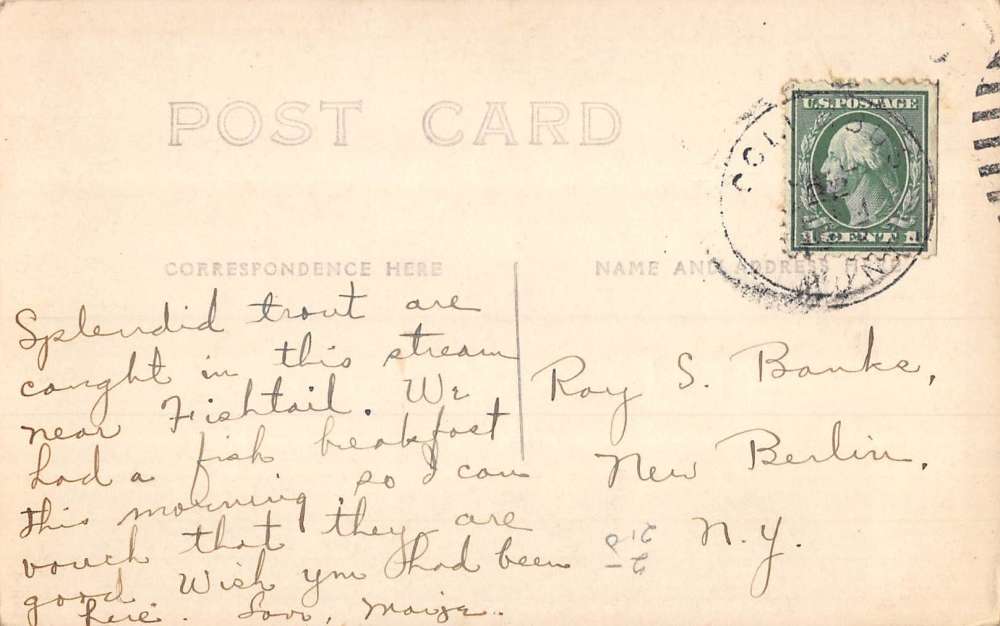 POST CARD
U.S. POSTAGE
1 CENT 1
COLUMBUS
MONT
CORRESPONDENCE HERE
NAME AND ADDRESS HERE
Splendid trout are
caught in this stream
near Fishtail. We
had a fish breakfast
this morning, so I can
vouch that they are
good Wish you had been
here. Love, Maize.
Roy S. Banks,
New Berlin,
N.Y.